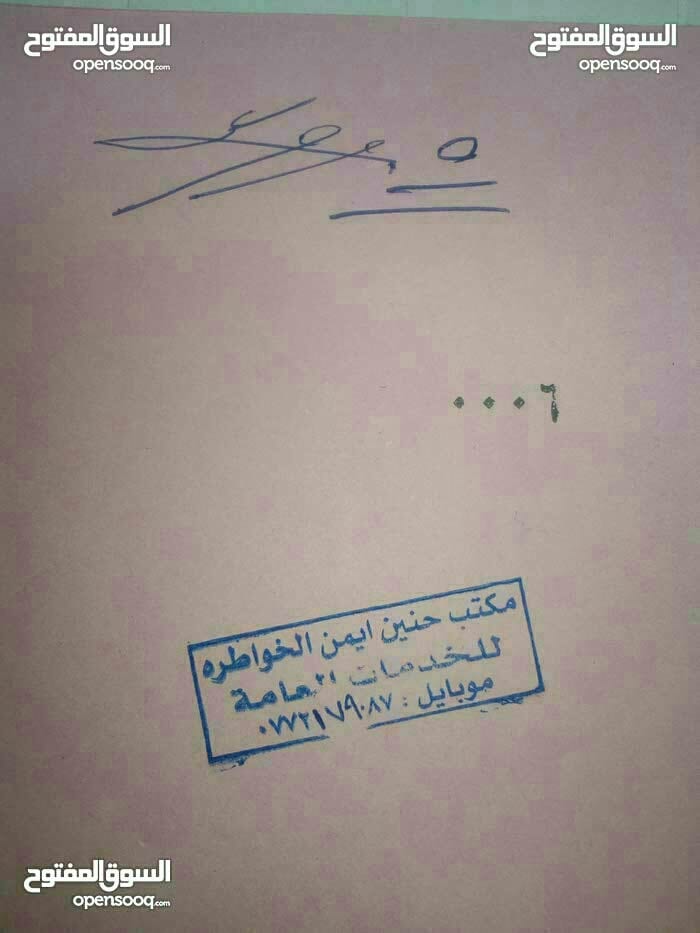 السوق المفتوح السوق المفتوح
opensooq.com opensooq.com
٠٠٠٦
مكتب حنين ايمن الخواطره
للخدمات العامة
موبايل : ٠٧٧٢١٧٩٠٨٧
السوق المفتوح
opensooq.com